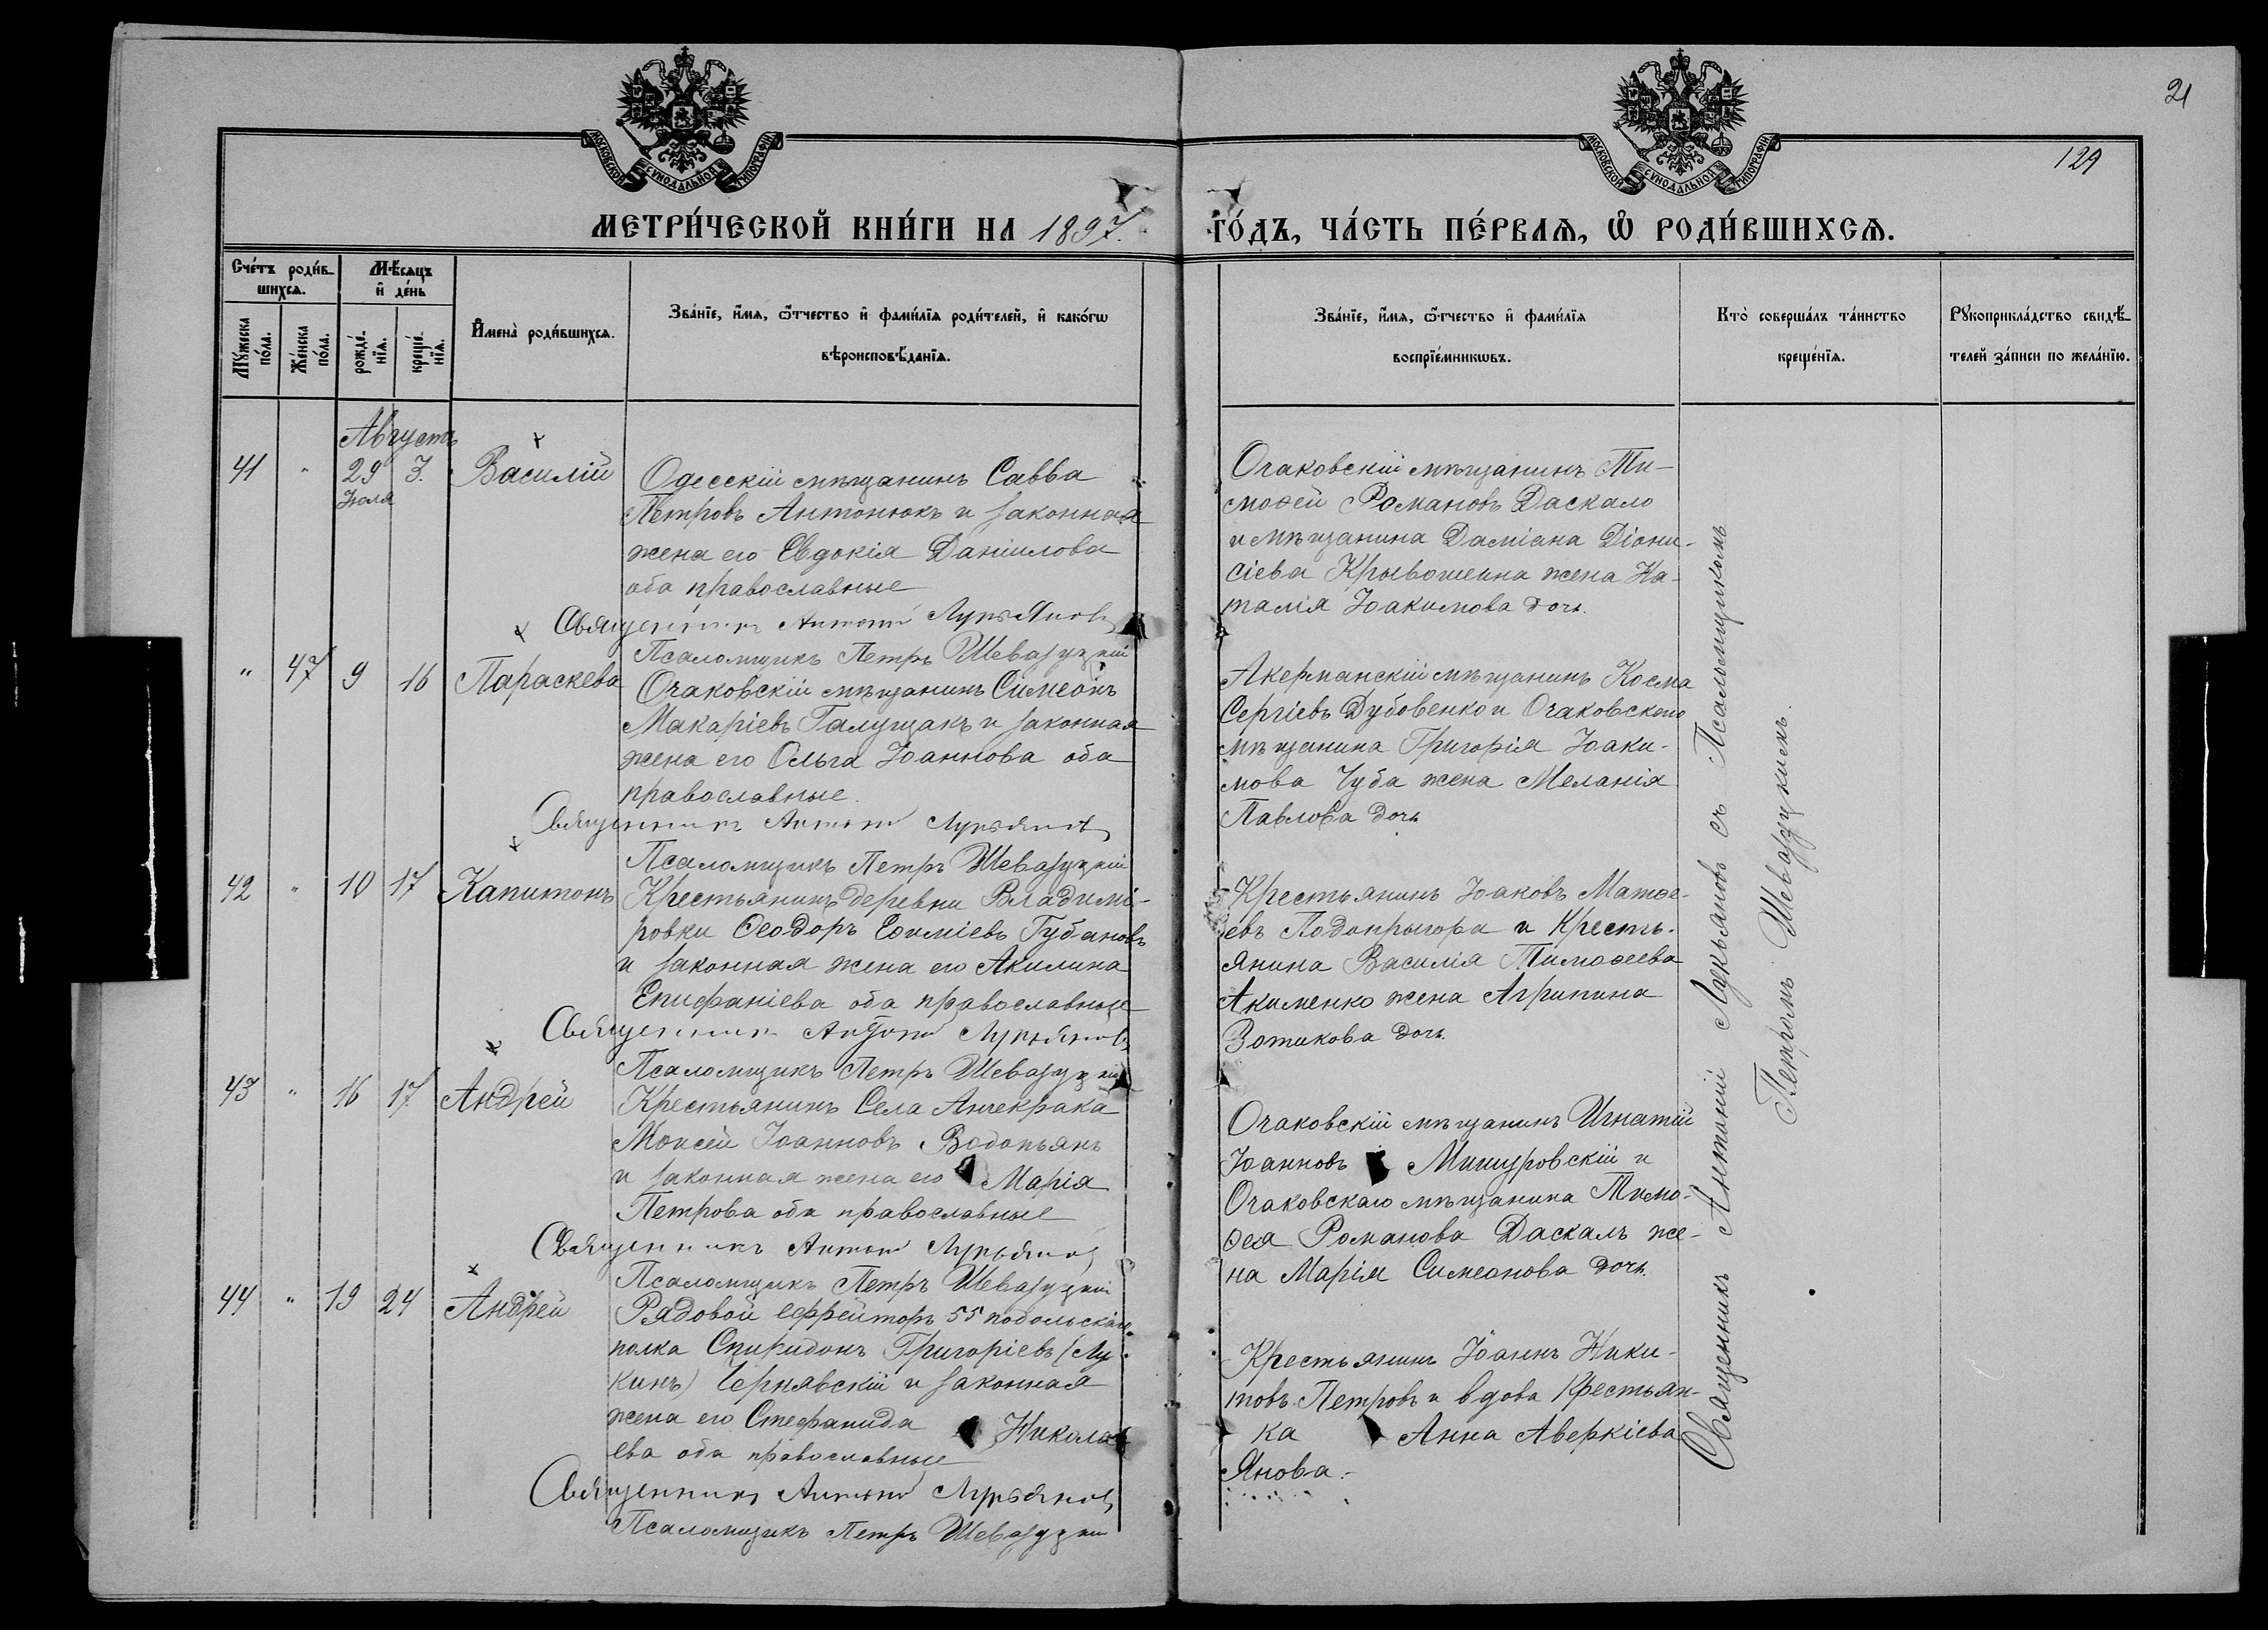 21
129
МОСКОВСКОЙ СУНОДАЛЬНОЙ ТИПОГРАФІИ
МОСКОВСКОЙ СУНОДАЛЬНОЙ ТИПОГРАФІИ
МЕТРИ́ЧЕСКОЙ КНИ́ГИ НА 1897. ГО́ДЪ, ЧА́СТЬ ПЕ́РВАѦ, Ѡ҆ РОДИ́ВШИХСѦ.
Сче́тъ роди́в-
шихсѧ.
Мѣ́сѧцъ
и҆ де́нь
Мꙋ́жеска
по́ла.
Же́нска
по́ла.
рожде́-
нїѧ.
креще́-
нїѧ.
И҆мена̀ роди́вшихсѧ.
Зва́нїе, и҆́мѧ, ѻ҆́тчество и҆ фами́лїѧ роди́телей, и҆ како́гѡ
вѣроисповѣ́данїѧ.
Зва́нїе, и҆́мѧ, ѻ҆́тчество и҆ фами́лїѧ
воспрїе́мникѡвъ.
Кто̀ соверша́лъ та́инство
креще́нїѧ.
Рꙋкоприкла́дство свидѣ́-
телей за́писи по жела́нїю.
Августъ
41 " 29 3. Василій
Іюля
Одесскій мѣщанинъ Савва
Петровъ Антонюкъ и законная
жена его Евдокія Даніилова
оба православные
Священникъ Антоній Лукьяновъ
Псаломщикъ Петръ Шевазуцкій
Очаковскій мѣщанинъ Ти-
моѳей Романовъ Даскало
и мѣщанина Даміана Діони-
сіева Крывошеина жена На-
талія Іоакимова дочь.
" 47 9 16 Параскева
Очаковскій мѣщанинъ Симеонъ
Макаріевъ Галущакъ и законная
жена его Ольга Іоаннова оба
православные.
Священникъ Антоній Лукьяновъ
Псаломщикъ Петръ Шевазуцкій
Акерманскій мѣщанинъ Косма
Сергіевъ Дубовенко и Очаковскаго
мѣщанина Григорія Іоаки-
мова Чуба жена Меланія
Павлова дочь
42 " 10 17 Капитонъ
Крестьянинъ деревни Владимі-
ровки Ѳеодоръ Евѳиміевъ Губановъ
и законная жена его Акилина
Епифаніева оба православные
Священникъ Антоній Лукьяновъ
Псаломщикъ Петръ Шевазуцкій
Крестьянинъ Іоаковъ Матѳе-
евъ Подопрыгора и Кресть-
янина Василія Тимоѳеева
Акименко жена Агрипина
Зотикова дочь.
43 " 16 17 Андрей
Крестьянинъ Села Анчекрака
Моисей Іоанновъ Водопьянъ
и законная жена его Марія
Петрова оба православные
Священникъ Антоній Лукьяновъ
Псаломщикъ Петръ Шевазуцкій
Очаковскій мѣщанинъ Игнатій
Іоанновъ Мишуровскій и
Очаковскаго мѣщанина Тимо-
ѳея Романова Даскалъ же-
на Марія Симеонова дочь.
44 " 19 24 Андрей
Рядовой ефрейторъ 55 подольскаго
полка Спиридонъ Григоріевъ (Лу-
кинъ) Чернявскій и законная
жена его Стефанида Никола-
ева оба православные
Священникъ Антоній Лукьяновъ
Псаломщикъ Петръ Шевазуцкій
Крестьянинъ Іоаннъ Ники-
товъ Петровъ и вдова Крестьян-
ка Анна Аверкіева
Янова.
Священникъ Антоній Лукьяновъ съ Псаломщикомъ
Петромъ Шевазуцкимъ.